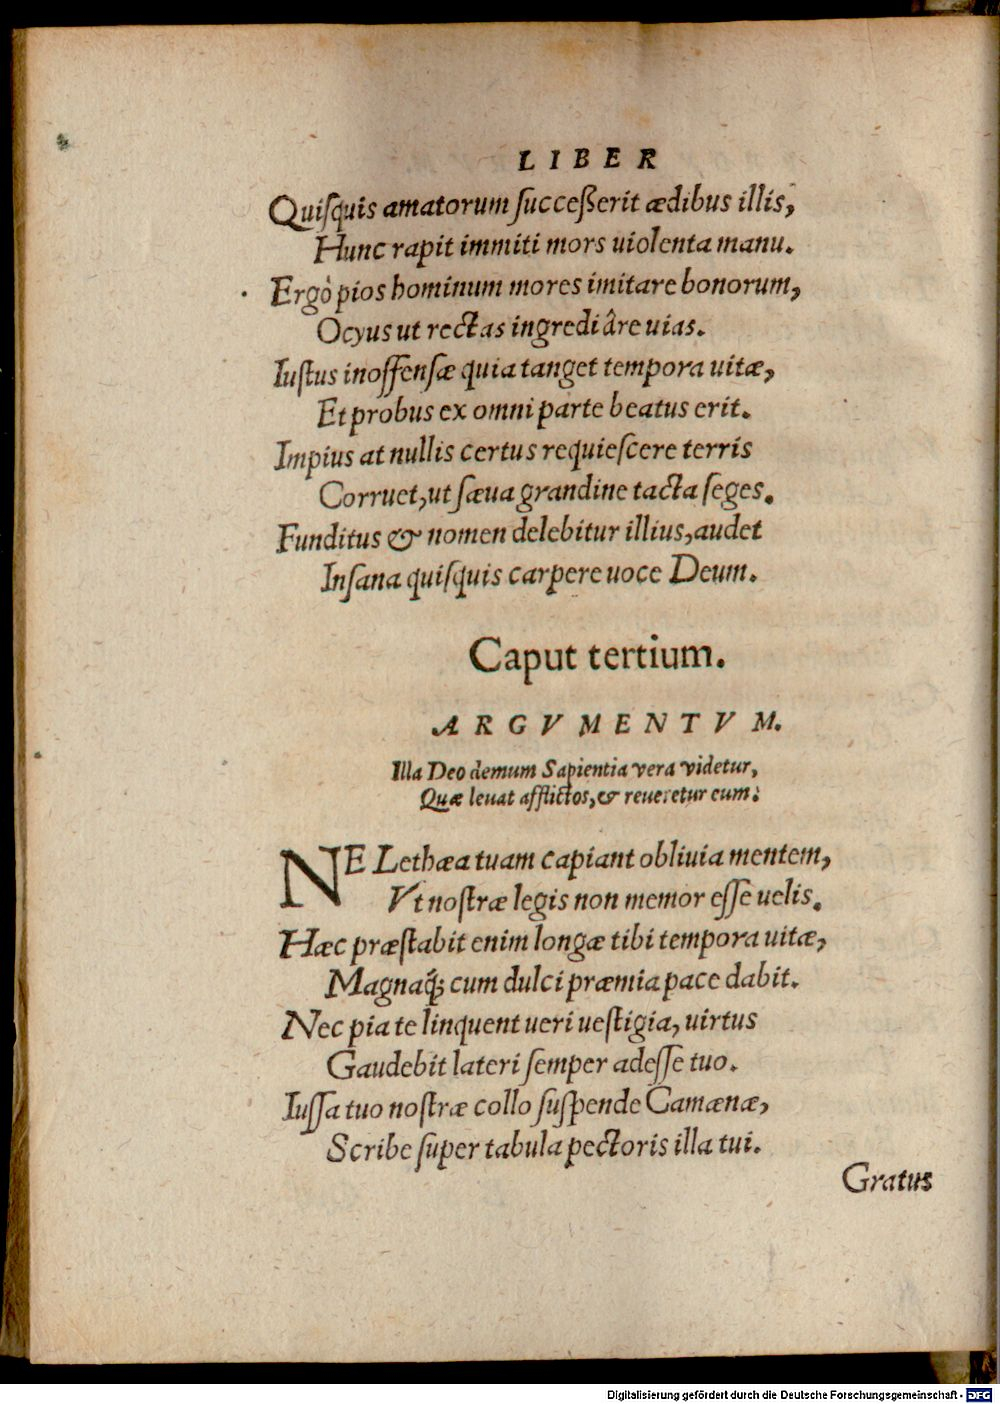 LIBER
Quiſquis amatorum ſucceßerit ædibus illis,
Hunc rapit immiti mors uiolenta manu.
Ergò pios hominum mores imitare bonorum,
Ocyus ut rectas ingrediâre uias.
Iuſtus inoffenſæ quia tanget tempora uitæ,
Et probus ex omni parte beatus erit.
Impius at nullis certus requieſcere terris
Corruet, ut ſæua grandine tacta ſeges.
Funditus & nomen delebitur illius, audet
Inſana quiſquis carpere uoce Deum.
Caput tertium.
ARGVMENTVM.
Illa Deo demum Sapientia vera videtur,
Quæ leuat afflictos, & reueretur eum:
NE Lethæa tuam capiant obliuia mentem,
Vt noſtræ legis non memor eſſe uelis.
Hæc præſtabit enim longæ tibi tempora uitæ,
Magnaq́; cum dulci præmia pace dabit.
Nec pia te linquent ueri ueſtigia, uirtus
Gaudebit lateri ſemper adeſſe tuo.
Iuſſa tuo noſtræ collo ſuſpende Camænæ,
Scribe ſuper tabula pectoris illa tui.
Gratus
Digitalisierung gefördert durch die Deutsche Forschungsgemeinschaft - DFG